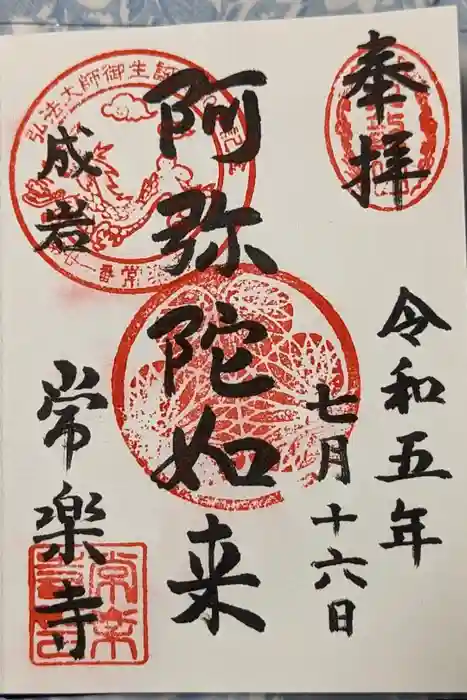 奉拝
令和五年
七月十六日
阿弥陀如来
成岩
常楽寺
弘法大師御生誕
常楽